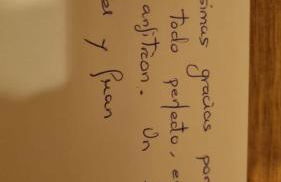 simas gracias por
todo perfecto, e
anfitrion. Un
el y Fran